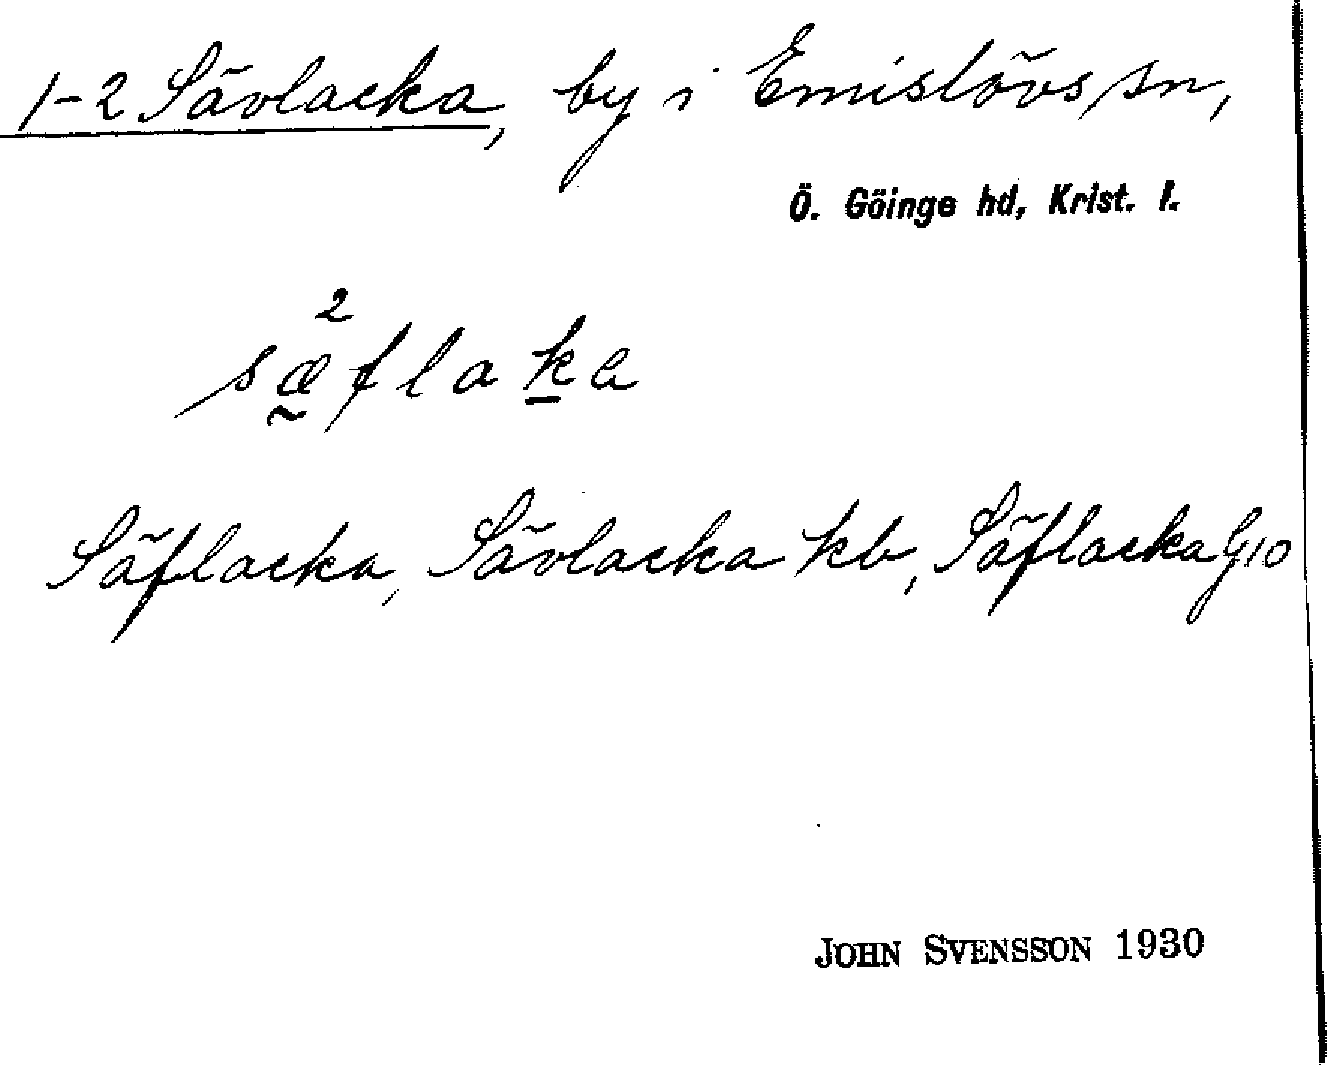 1-2 Sävlacka, by i Emislövs sn,
Ö. Göinge hd, Krist. l.
2
sæ̰flak̲a
Säflacka, Sävlacka kb, Säflacka G10
JOHN SVENSSON 1930